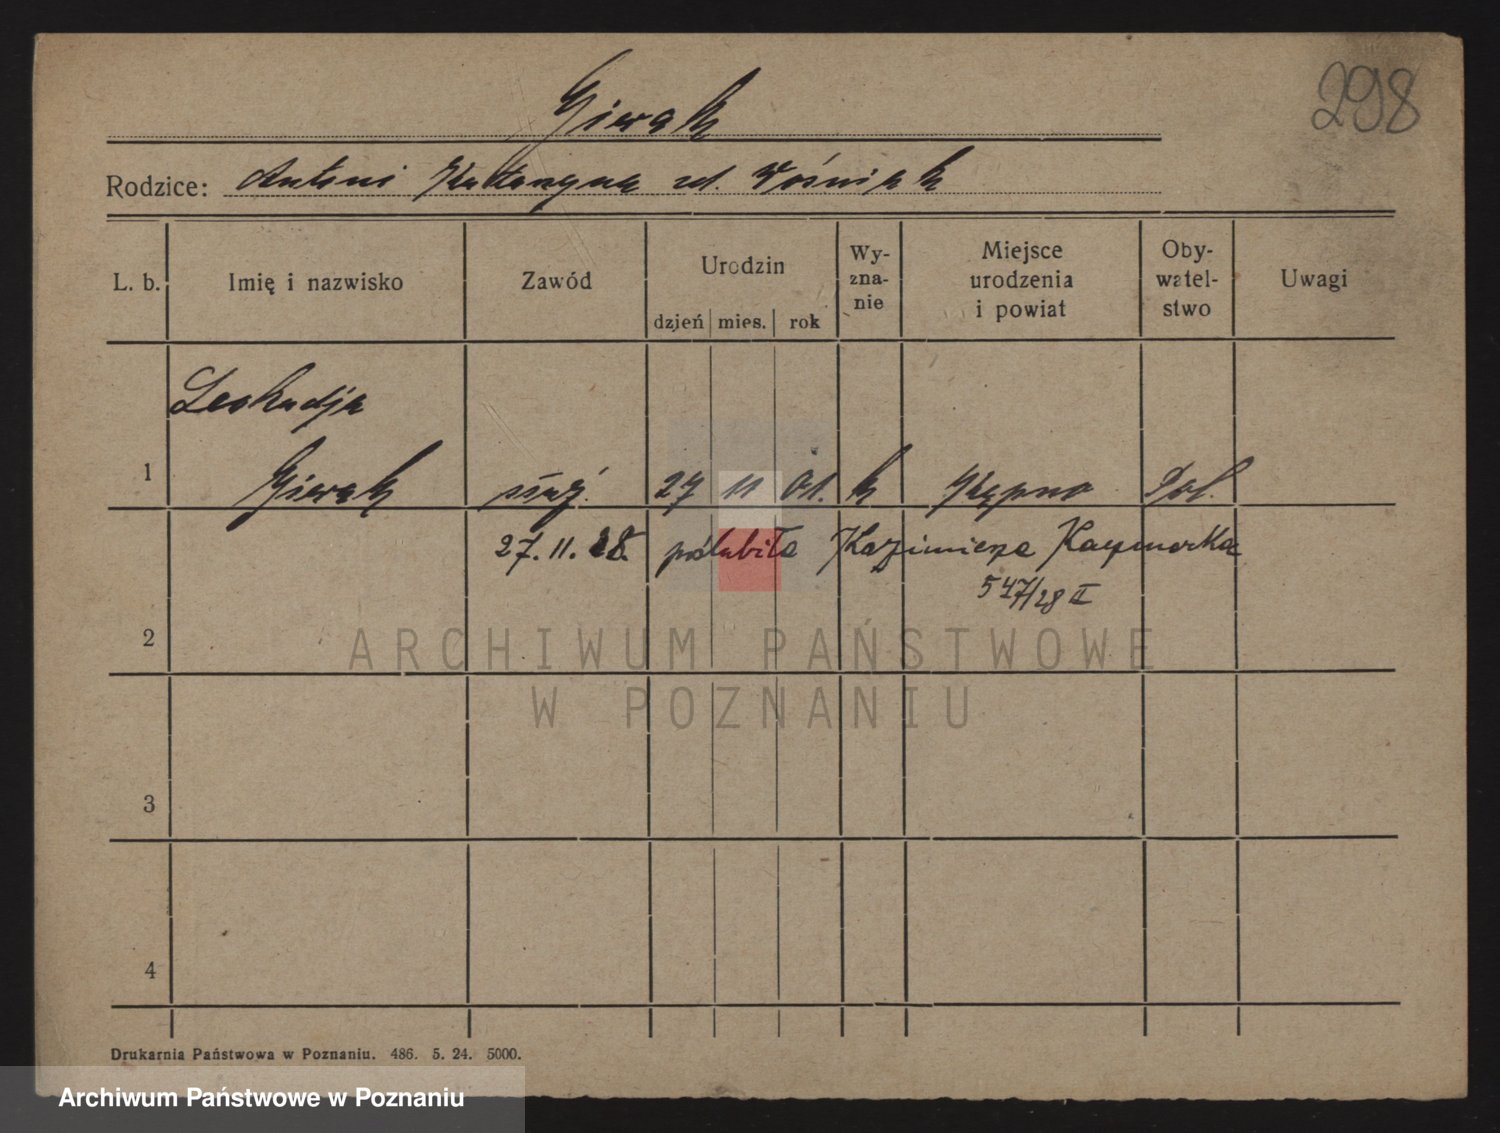 298
Gierak
Rodzice: Antoni Katarzyna zd. Woźniak
L. b. Imię i nazwisko Zawód Urodzin dzień mies. rok Wy-zna-nie Miejsce urodzenia i powiat Oby-watel-stwo Uwagi
Leokadja
1 Gierak służ. 27 11 01. k Kępno Pol.
27. 11. 28. poślubiła Kazimierza
547/28 II
2
ARCHIWUM PAŃSTWOWE
W POZNANIU
3
4
Drukarnia Państwowa w Poznaniu. 486. 5. 24. 5000.
Archiwum Państwowe w Poznaniu